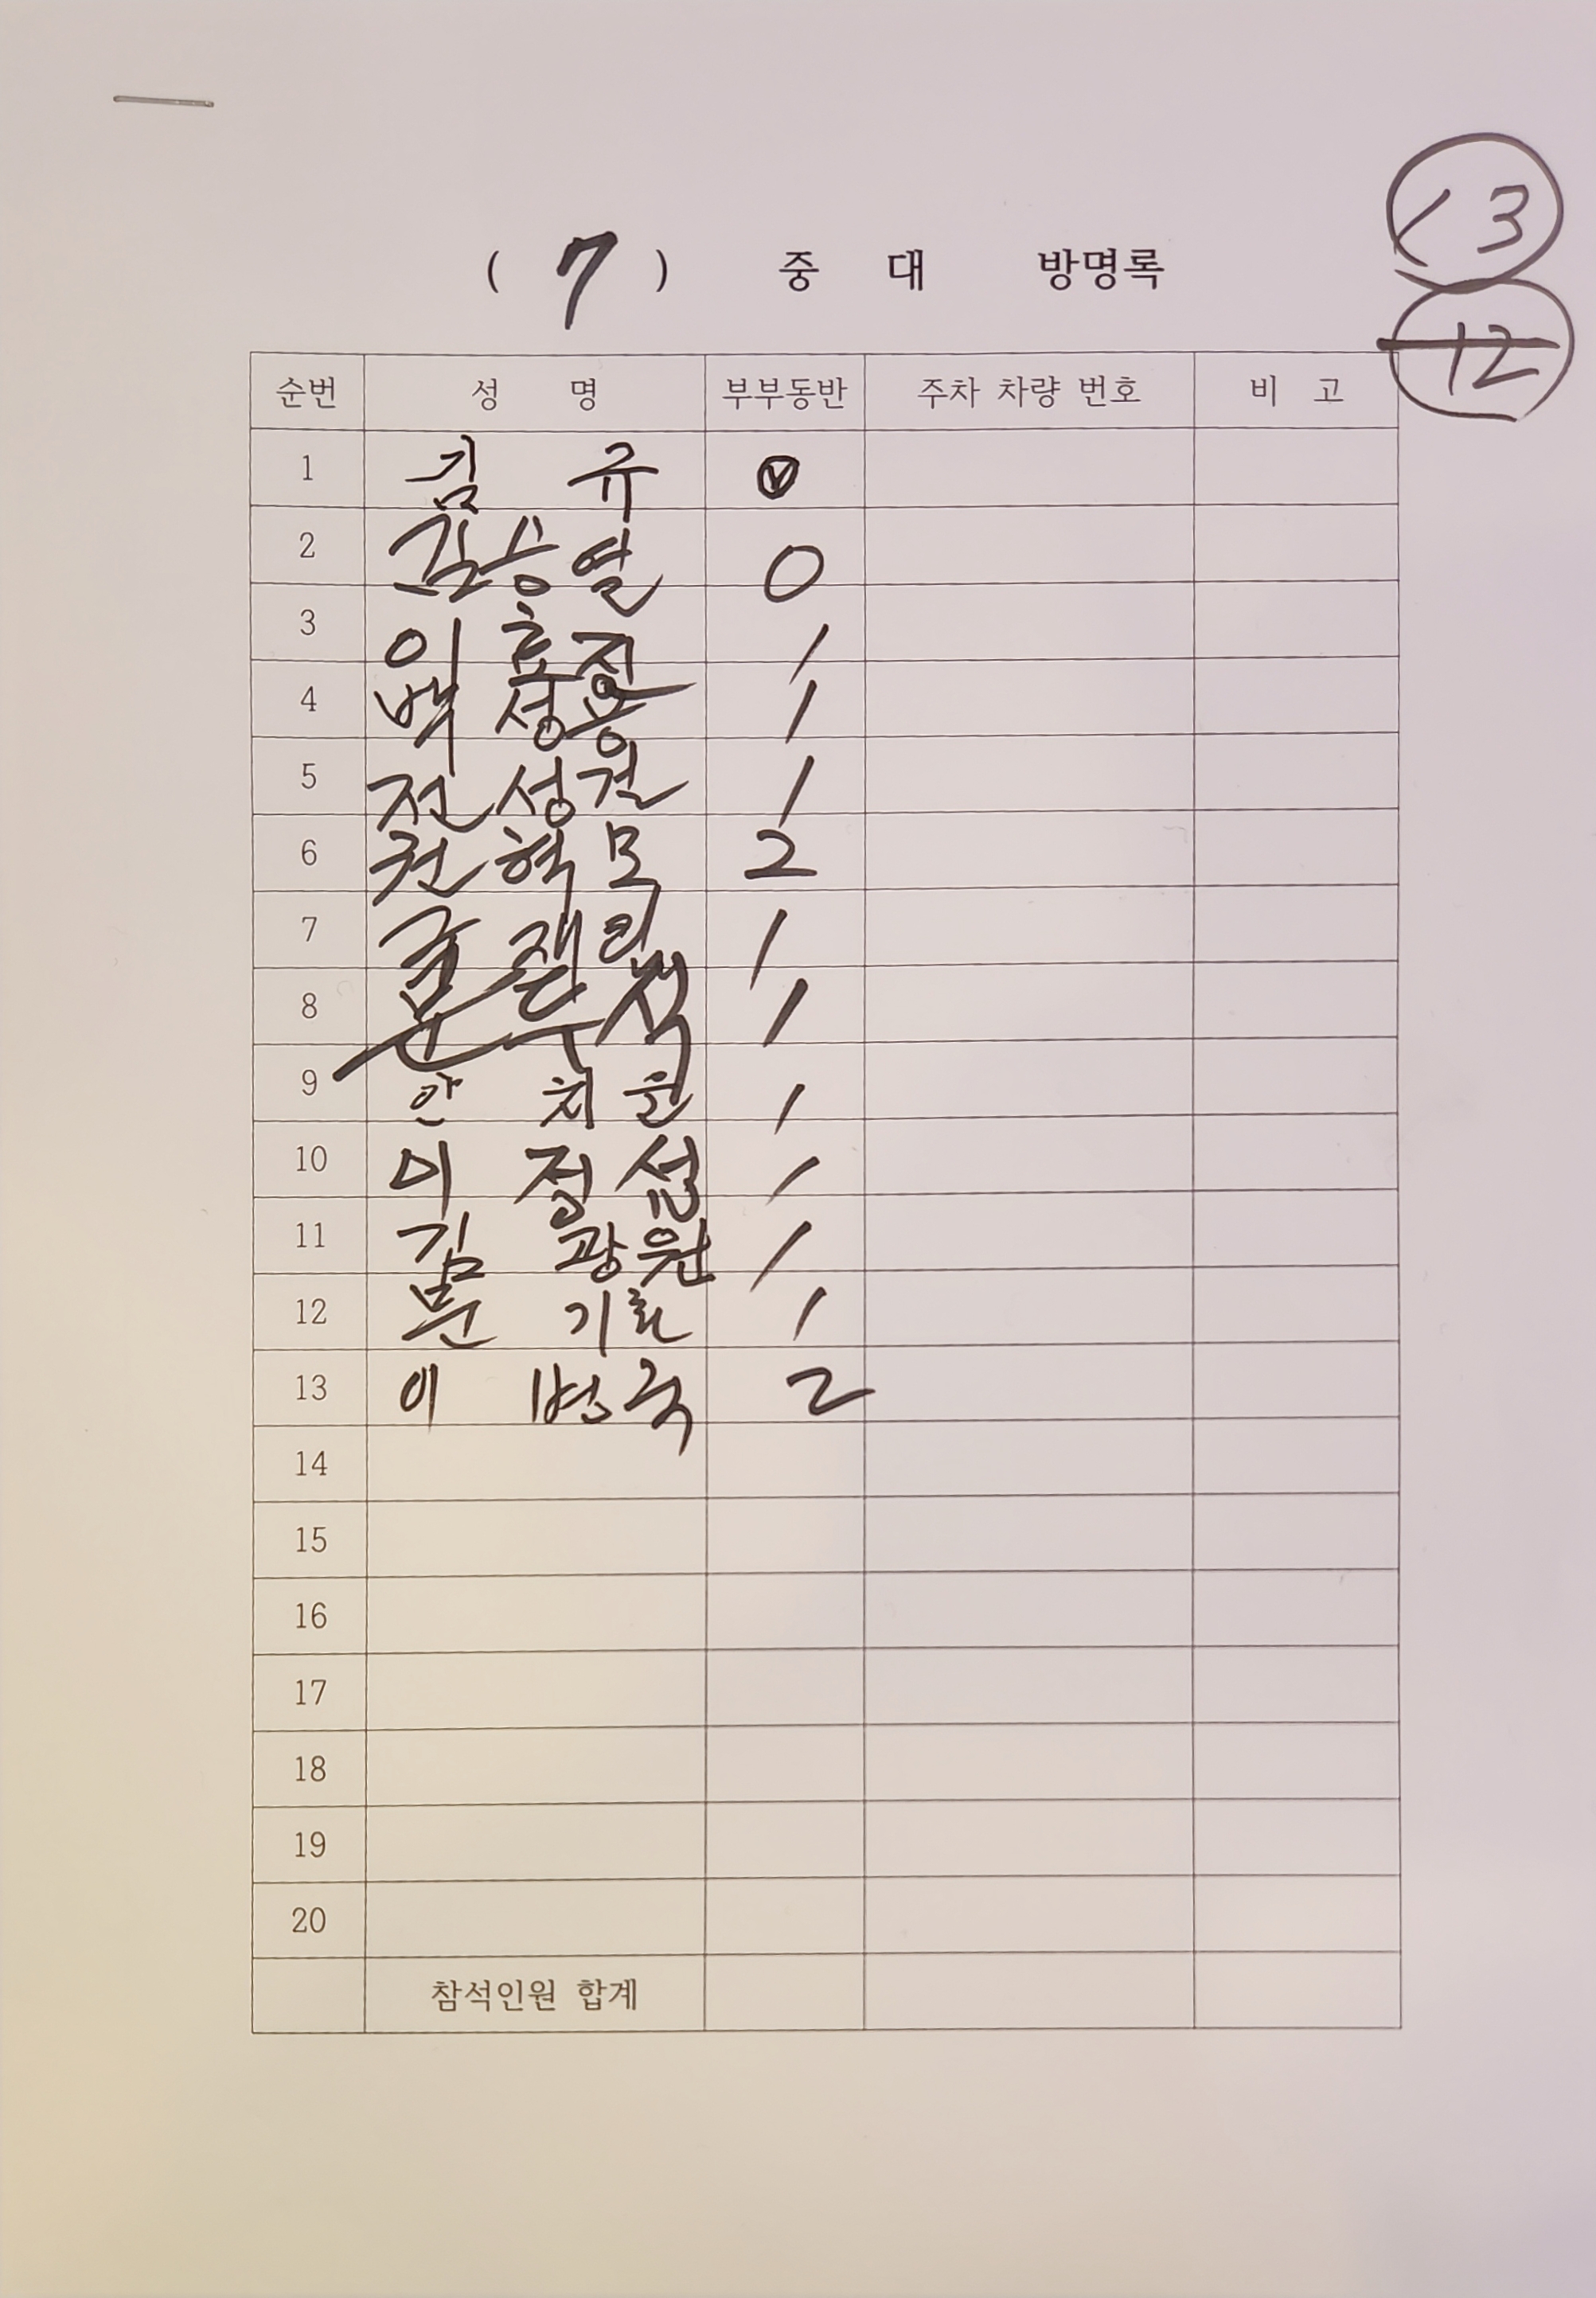 13
( 7 ) 중 대 방명록
12
순번 성 명 부부동반 주차 차량 번호 비 고
1 김 규 ⓥ
2 김승열 0
3 이 효진 /
4 백 성용 /
5 전성원 1
6 권혁모 2
7 /
8 석 /
9 안 치훈 /
10 이 정섭 /
11 김 광원 /
12 문 기 /
13 이 병국 2
14
15
16
17
18
19
20
참석인원 합계